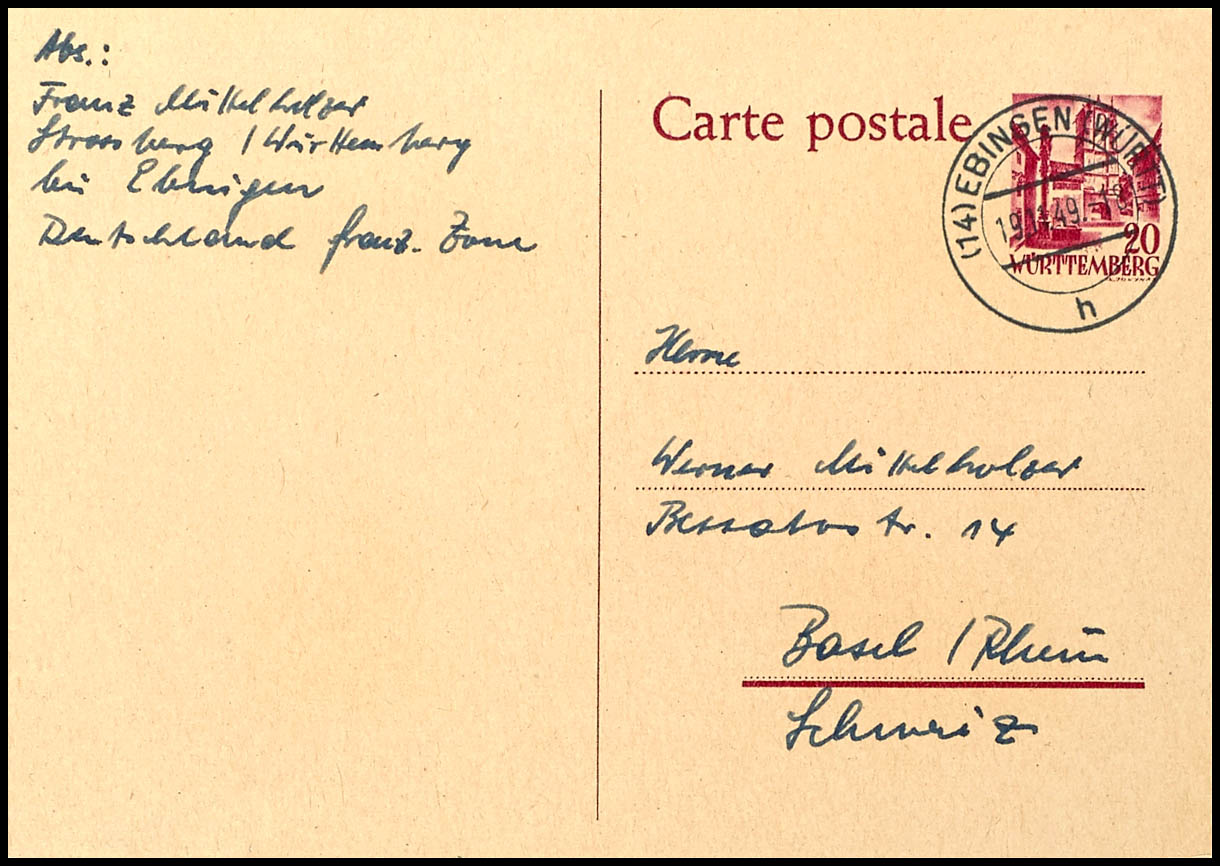 Abs.:
Franz Mittelholzer
Strassberg / Württemberg
bei Ebingen
Deutschland franz. Zone
Carte postale
(14) EBINGEN (WÜRTT)
19.11.49.-18
h
20
WÜRTTEMBERG
Herrn
Werner Mittelholzer
str. 14
Basel / Rhein
Schweiz